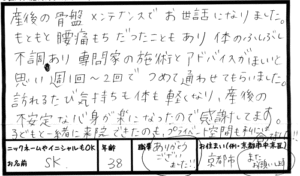 産後の骨盤メンテナンスでお世話になりました。
もともと腰痛もちだったこともあり体のふしぶし
不調あり専門家の施術とアドバイスがほしいと
思い週1回〜2回でつめて通わせてもらいました。
訪れるたび気持ちも体も軽くなり、産後の
不安定な心身が楽になったので感謝してます。
子どもと一緒に来院できたのも、プライベート空間も
ニックネームやイニシャルもOK
お名前 SK
年齢 38
職業 ありがとうございました!!
お住まい(例:京都市中京区)
京都市
またお願いします